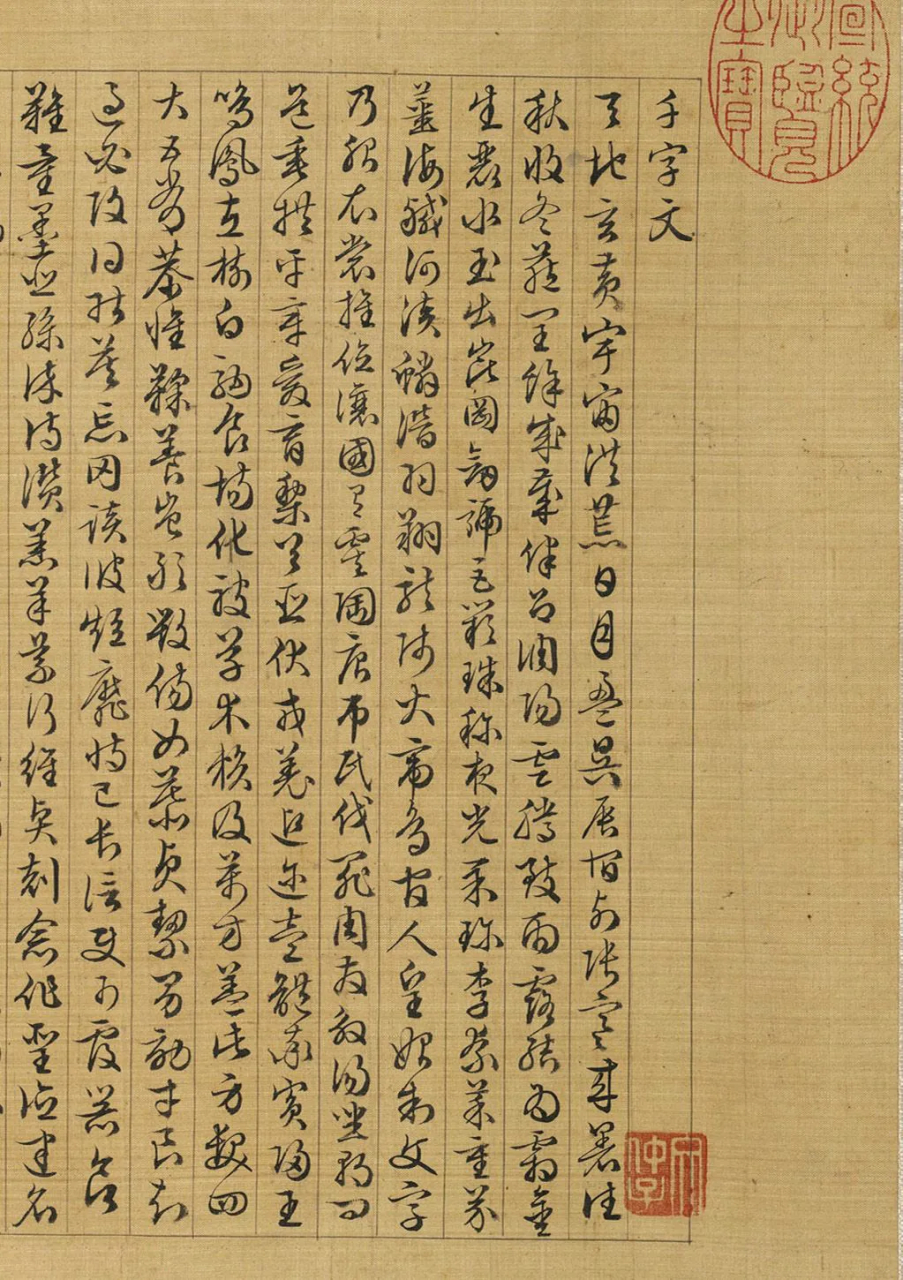 宣統御覽之寶
千字文
天地玄黃宇宙洪荒日月盈昃辰宿列張寒來暑往
秋收冬藏閏餘成歲律呂調陽雲騰致雨露結為霜金
生麗水玉出崑岡劍號巨闕珠稱夜光菓珍李柰菜重芥
薑海鹹河淡鱗潛羽翔龍師火帝鳥官人皇始制文字
乃服衣裳推位讓國有虞陶唐弔民伐罪周發殷湯坐朝問
道垂拱平章愛育黎首臣伏戎羌遐邇壹體率賓歸王
鳴鳳在樹白駒食場化被草木賴及萬方蓋此身髮四
大五常恭惟鞠養豈敢毀傷女慕貞絜男效才良知
過必改得能莫忘罔談彼短靡恃己長信使可覆器欲
難量墨悲絲染詩讚羔羊景行維賢剋念作聖德建名